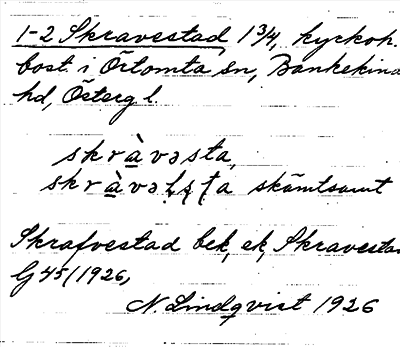 1-2 Skravestad, 1 3/4, kyrkoh.
bost. i Örtomta sn, Bankekind
hd, Österg l.
skràvəsta,
skràvəḷṣṭa skämtsamt
Skrafvestad bek, ek, Skravestad
G 45/1926,
N. Lindqvist 1926